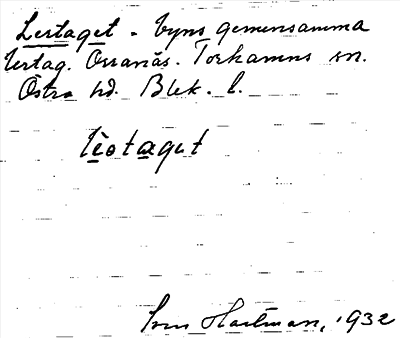 Lertaget - byns gemensamma
lertag. Orranäs. Torhamns sn.
Östra hd. Blek. l.
lèotæget
Sven Hartman, 1932